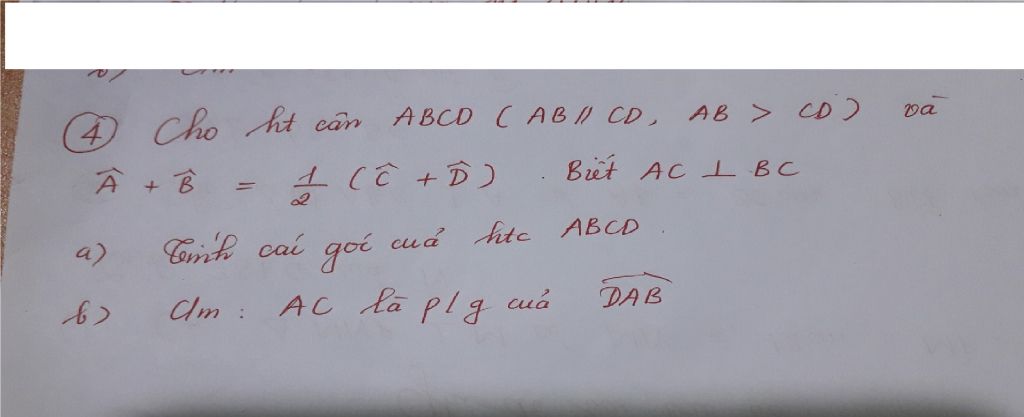 ④ Cho ht cân ABCD ( AB // CD, AB > CD ) và
Â + B̂ = 1/2 ( Ĉ + D̂ ) . Biết AC ⊥ BC
a) Tính các góc của htc ABCD .
b) Cm : AC là p/g của DAB